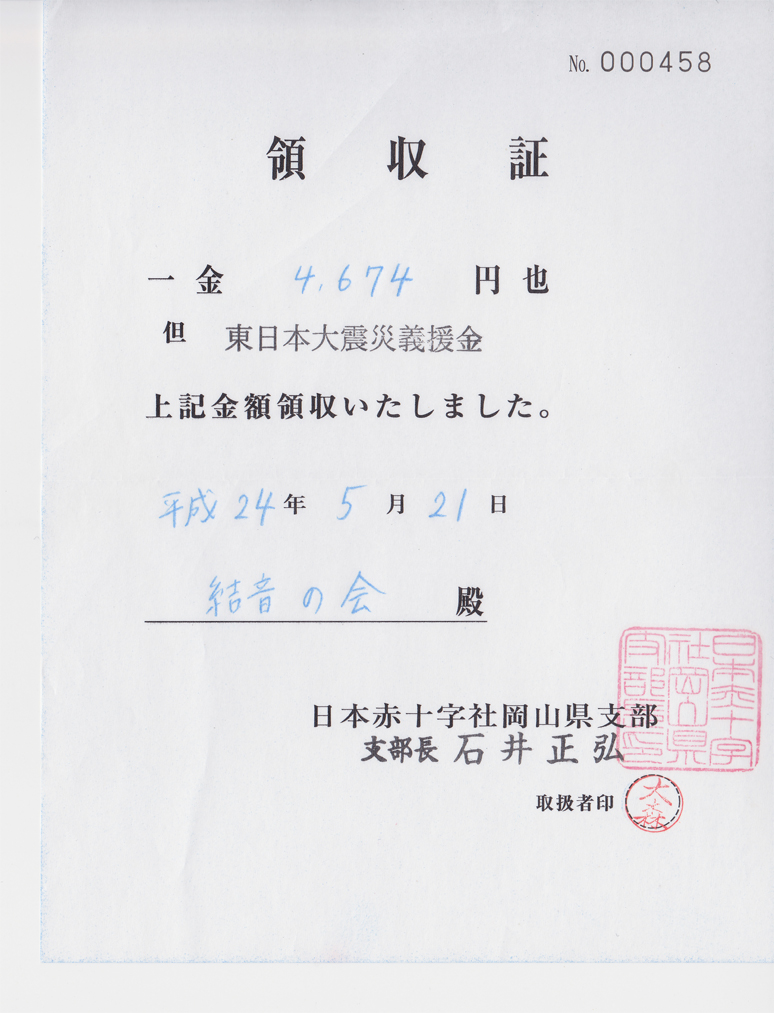 No. 000458
領収証
一金 4,674 円也
但 東日本大震災義援金
上記金額領収いたしました。
平成24年5月21日
結音の会 殿
日本赤十字社岡山県支部
支部長 石井正弘
日本赤十字社岡山県支部長印
取扱者印 大森